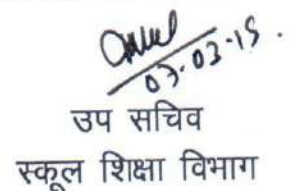 07-03-19.
उप सचिव
स्कूल शिक्षा विभाग